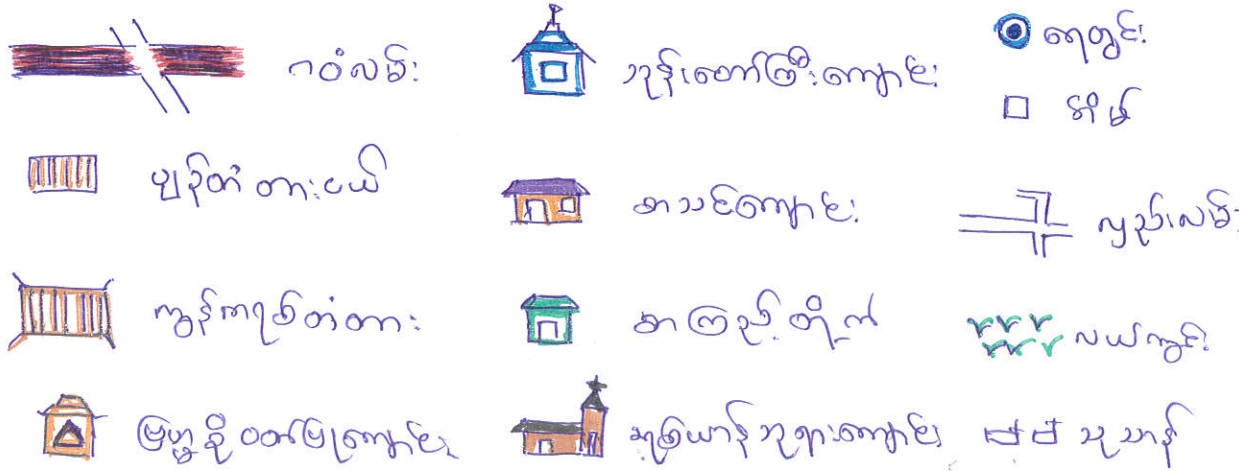 ဂဝံလမ်း
ပျဉ်တံတားငယ်
ကွန်ကရစ်တံတား
ဗြဟ္မစိုဝတ်ပြုကျောင်း
ဘုန်းတော်ကြီးကျောင်း
စာသင်ကျောင်း
စာကြည့်တိုက်
ခရစ်ယာန်ဘုရားကျောင်း
ရေတွင်း
အိမ်
လှည်းလမ်း
လယ်ကွင်း
သုသာန်